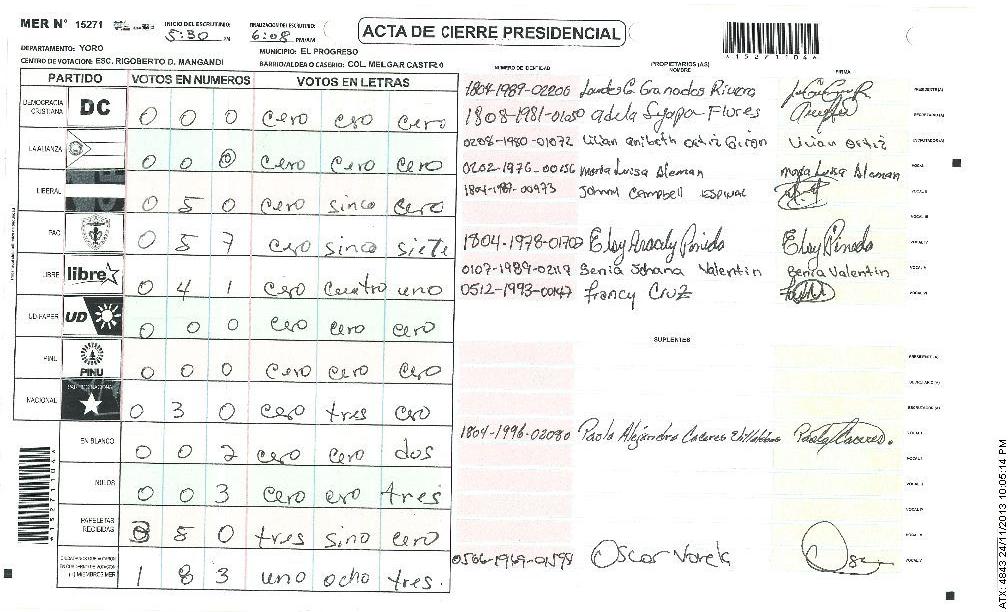 MER N° 15271
INICIO DEL ESCRUTINIO: 5:30 PM
FINALIZACION DEL ESCRUTINIO: 6:08 PM/AM
ACTA DE CIERRE PRESIDENCIAL
*15271104*
DEPARTAMENTO: YORO
MUNICIPIO: EL PROGRESO
CENTRO DE VOTACION: ESC. RIGOBERTO D. MANGANDI
BARRIO/ALDEA O CASERIO: COL. MELGAR CASTRO
PARTIDO VOTOS EN NUMEROS VOTOS EN LETRAS
DEMOCRACIA CRISTIANA DC 0 0 0 cero cero cero
LA ALIANZA 0 0 0 cero cero cero
LIBERAL 0 5 0 cero sinco cero
PAC 0 5 7 cero sinco siete
LIBRE libre 0 4 1 cero cuatro uno
UD-FAPER UD 0 0 0 cero cero cero
PINU PINU 0 0 0 cero cero cero
NACIONAL 0 3 0 cero tres cero
EN BLANCO 0 0 2 cero cero dos
NULOS 0 0 3 cero cero tres
PAPELETAS RECIBIDAS 3 5 0 tres sinco cero
1 8 3 uno ocho tres.
NUMERO DE IDENTIDAD PROPIETARIOS (AS) NOMBRE FIRMA
1804-1989-02206 Lourdes G. Granados Rivera PRESIDENTE (A)
1808-1981-01050 adela Suyapa Flores SECRETARIO (A)
0208-1980-01072 Lilian Ortiz ESCRUTADOR (A)
0202-1976-00156 Maria Luisa Aleman Maria Luisa Aleman VOCAL I
1804-1987-00973 Johnny Campbell ESPINAL VOCAL II
VOCAL III
1804-1978-01702 Elsy Pineda VOCAL IV
0107-1989-02117 Senia Johana Valentin Senia Valentin VOCAL V
0512-1993-00147 Francy Cruz VOCAL VI
SUPLENTES
PRESIDENTE (A)
SECRETARIO (A)
ESCRUTADOR (A)
1804-1996-02080 Paola Alejandra Caceres Paola Caceres. VOCAL I
VOCAL II
VOCAL III
VOCAL IV
VOCAL V
Oscar Varela
*15271104*
ATX: 4843 24/11/2013 10:05:14 PM